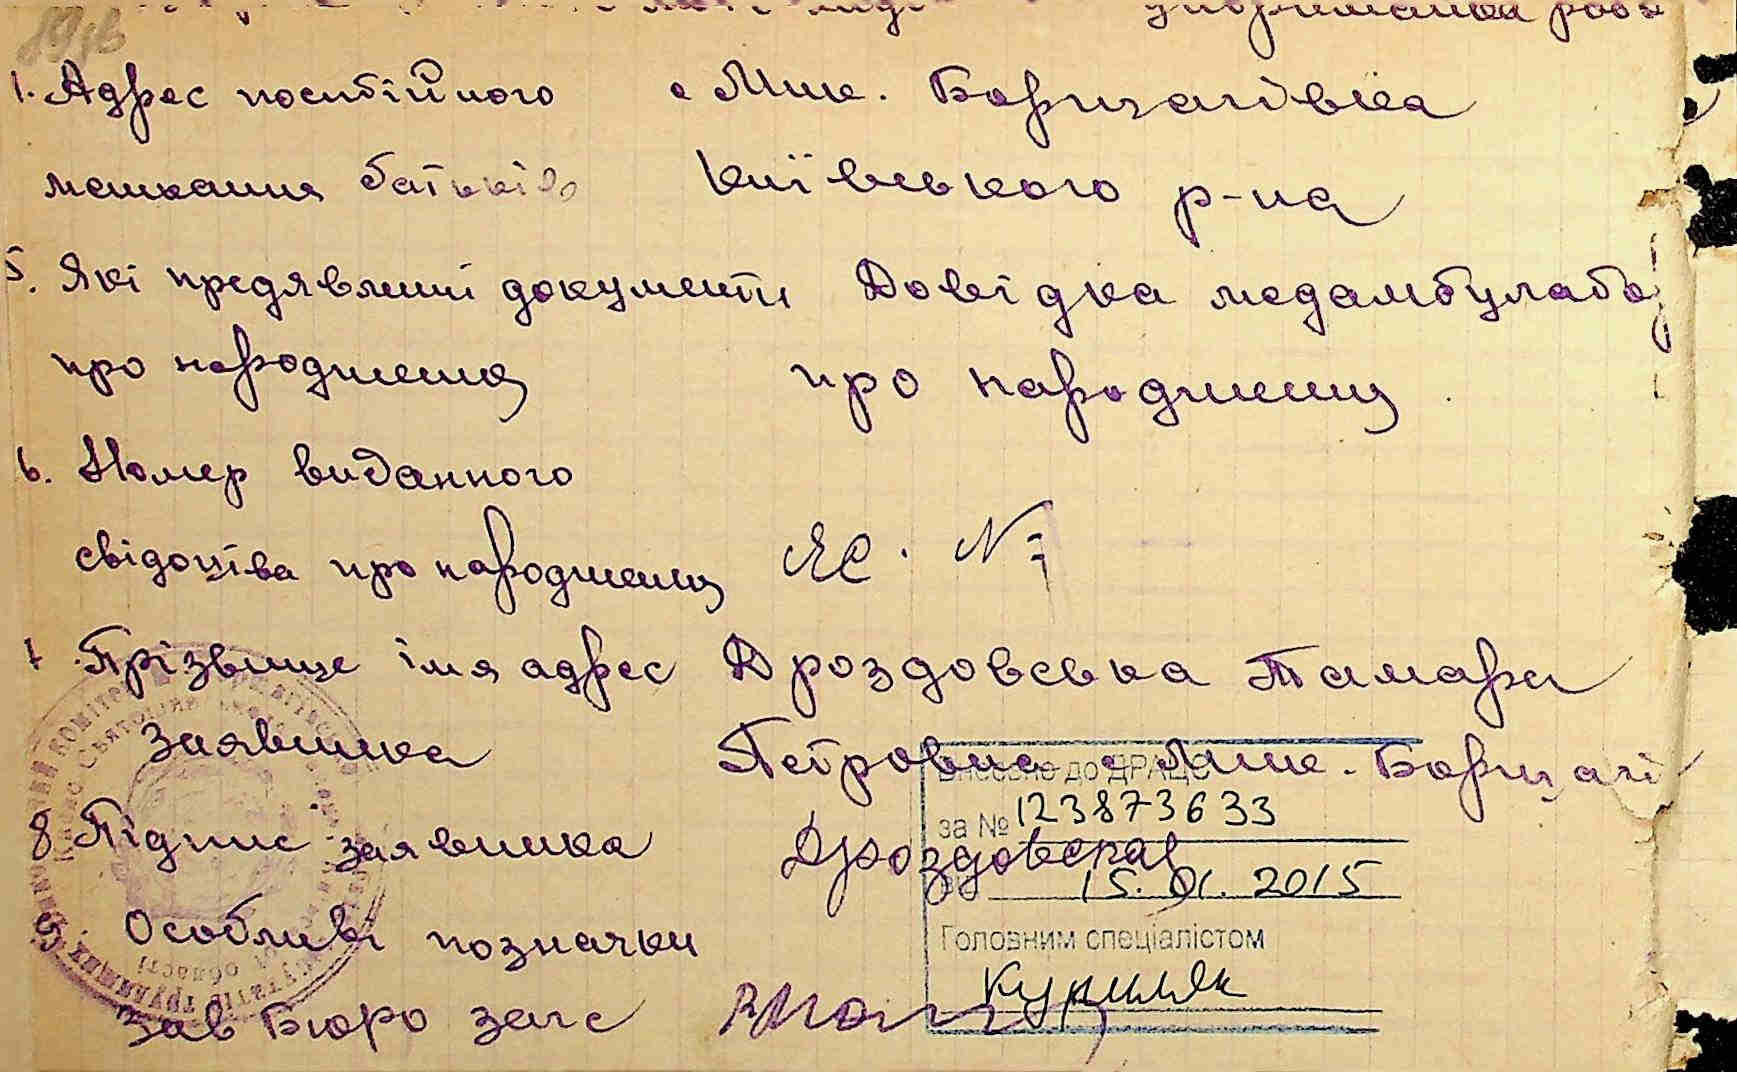 1. Адрес постійного с Мик. Борщагівка
мешкання батьків Київського р-на
5. Які предявлені документи Довідка медамбулато
про народження про народження
6. Номер виданного
свідоцтва про народження ЯС. №
7. Прізвище імя адрес Дроздовська Тамара
заявника Петровна с Мик. Борщагі
Внесено до ДРАЦС
за № 123873633
8 Підпис заявника Дроздовская
15. 01. 2015
Особливі позначки
Головним спеціалістом
Куриляк
Зав Бюро загс